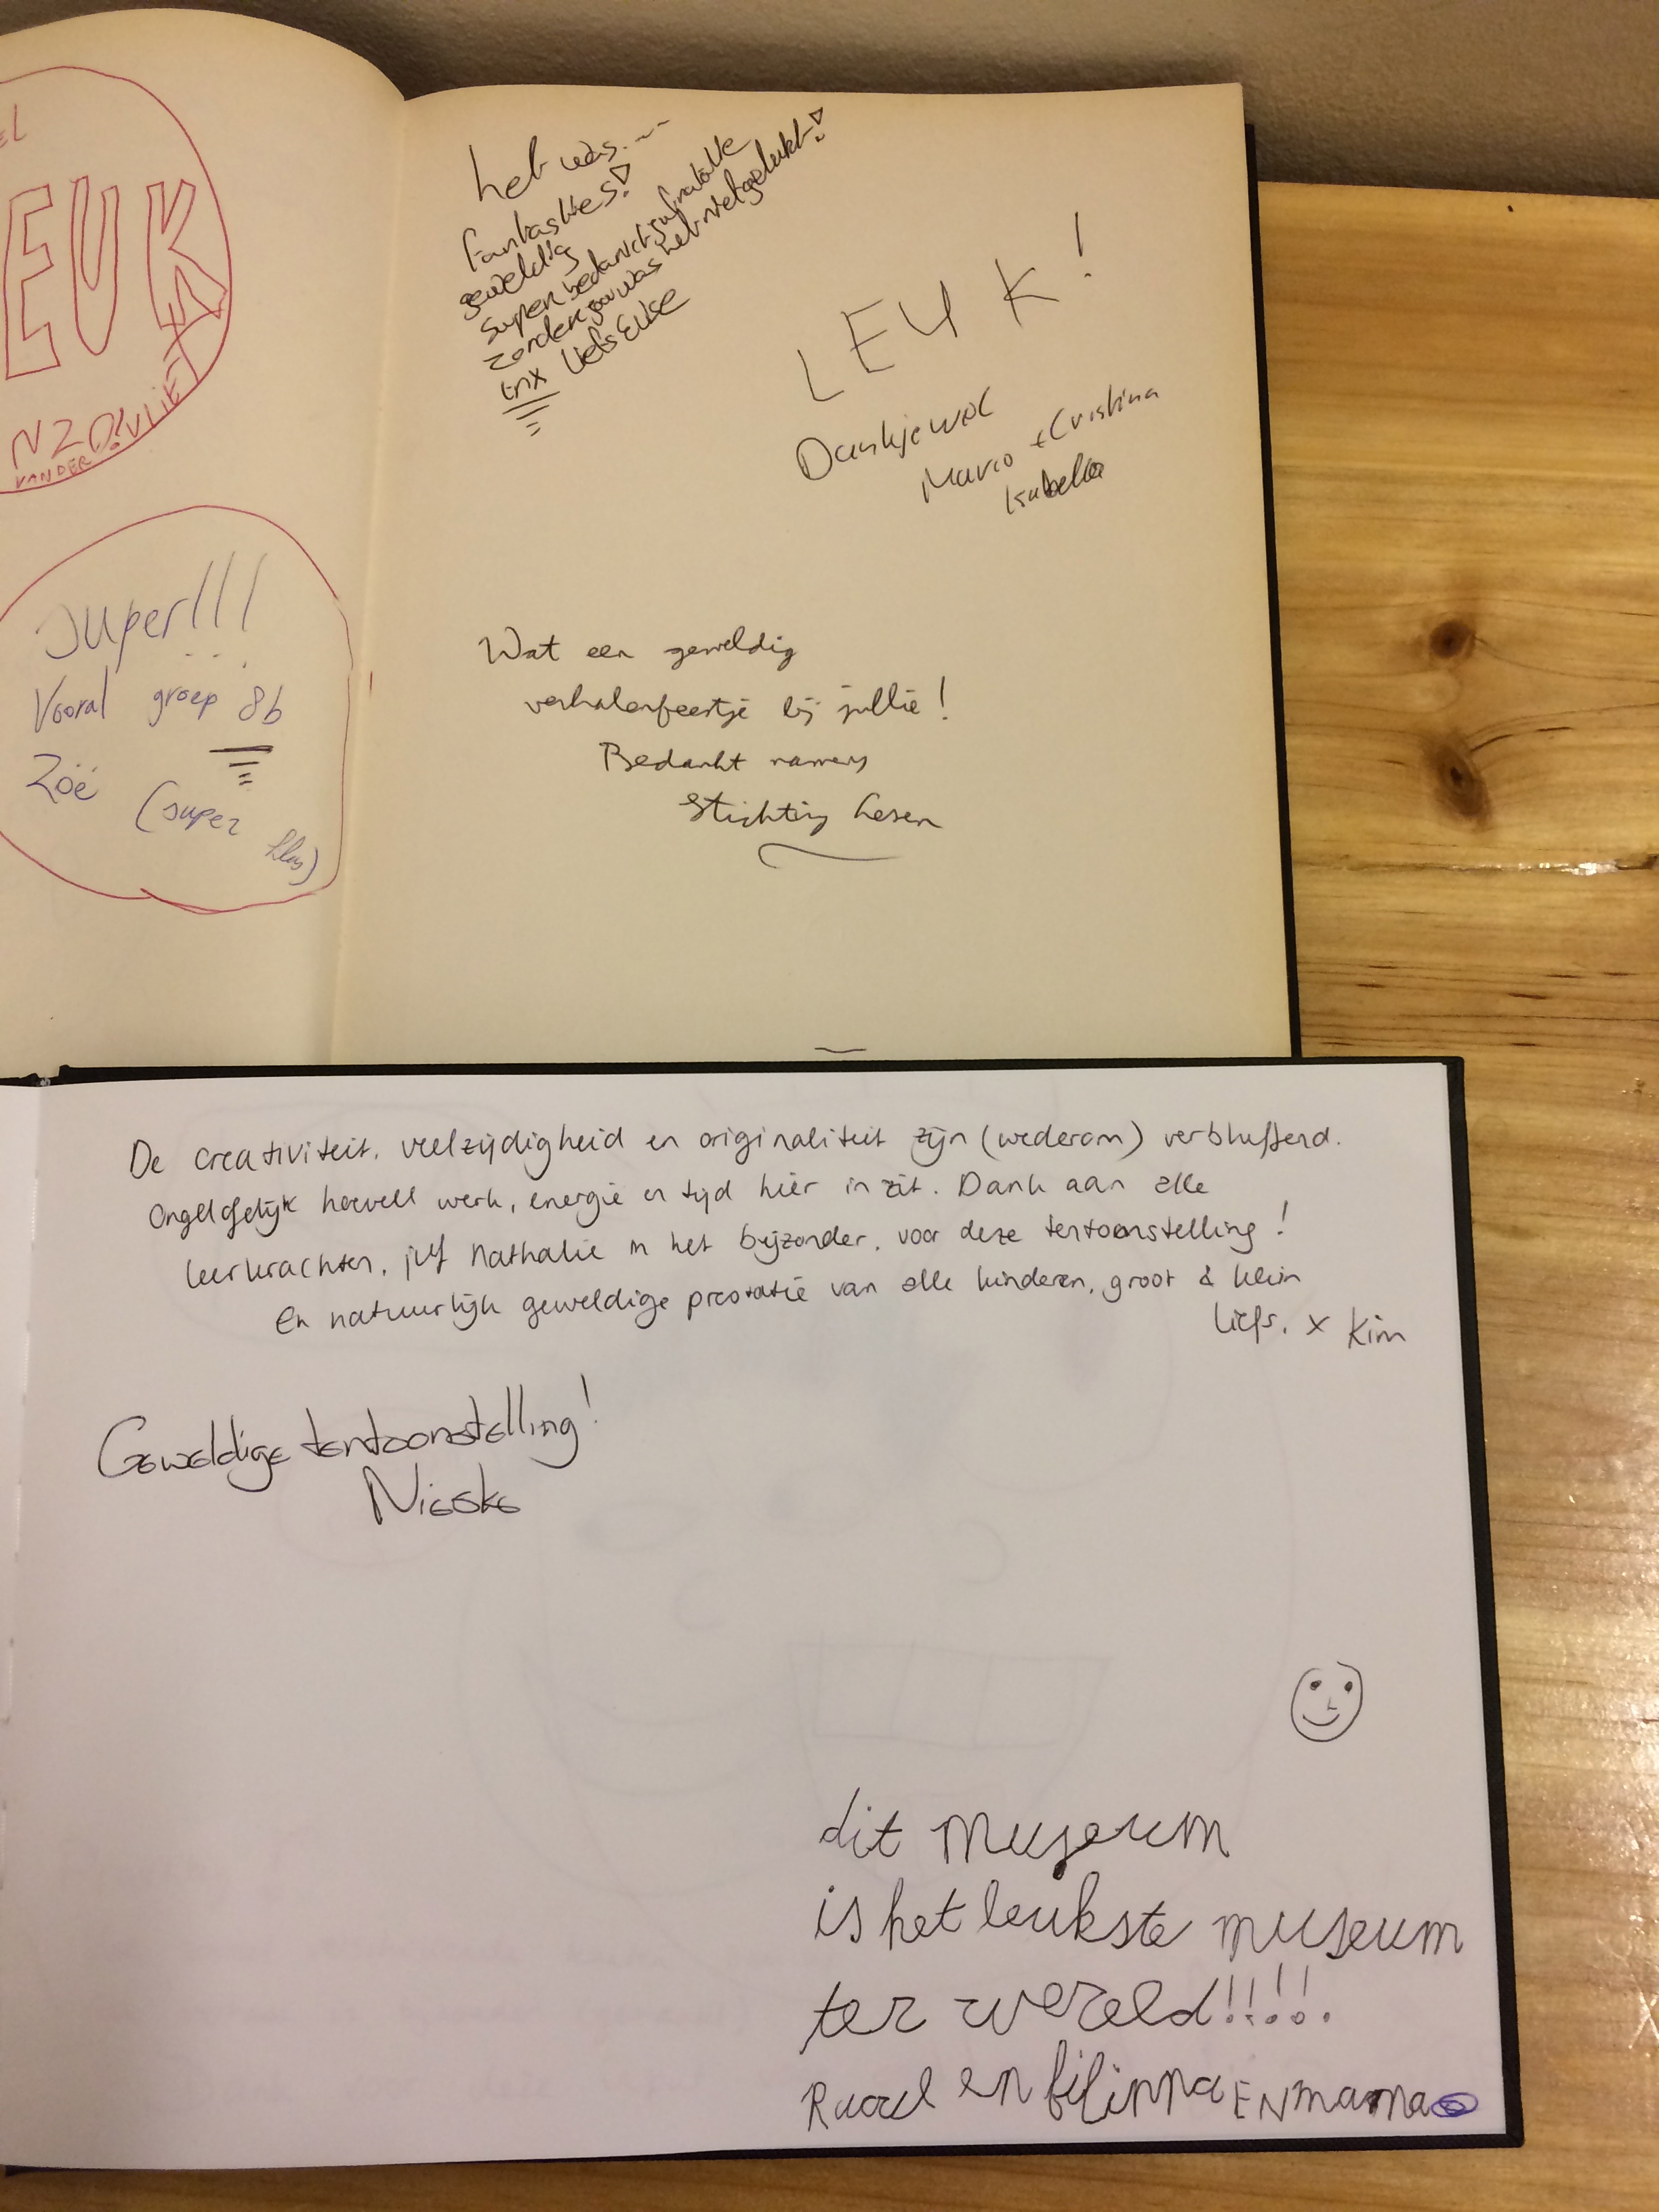 EL
EUK
NZO!
VAN DER VLIET
super!!!
Vooral groep 8b
Zoë
(super
klas)
het was...
fantasties!
geweldig
super bedankt juf natalie
zonder jou was het niet gelukt!
tnx liefs Elise
LEUK!
Dankjewel
Marco + Cristina
Isabella
Wat een geweldig
verhalenfeestje bij jullie!
Bedankt namens
Stichting Lezen
De creativiteit, veelzijdigheid en originaliteit zijn (wederom) verbluffend.
Ongelofelijk hoeveel werk, energie en tijd hier in zit. Dank aan alle
leerkrachten, juf Nathalie in het bijzonder, voor deze tentoonstelling!
En natuurlijk geweldige prestatie van alle kinderen, groot & klein
Liefs, x Kim
Geweldige tentoonstelling!
Nieske
dit museum
is het leukste museum
ter wereld!!!!!
en filippa EN mama